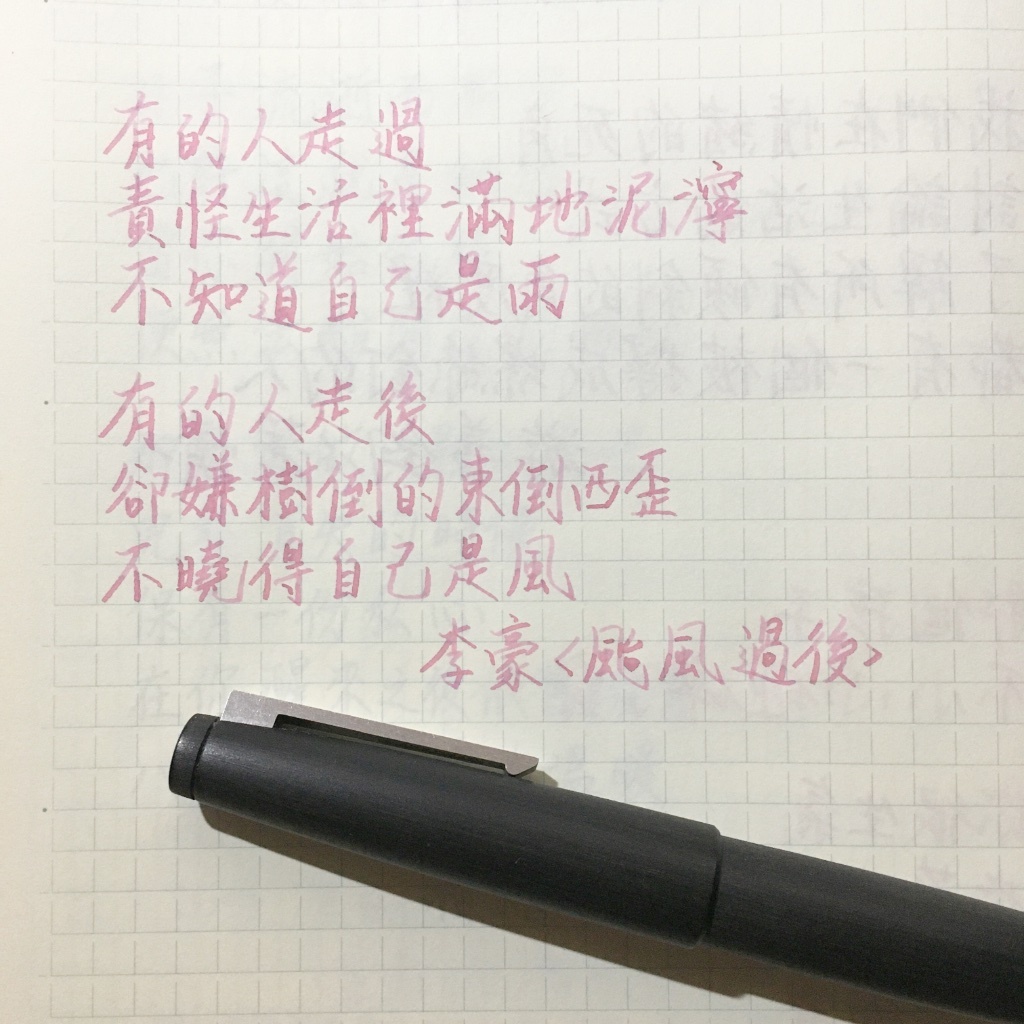 有的人走過
責怪生活裡滿地泥濘
不知道自己是雨
有的人走後
卻嫌樹倒的東倒西歪
不曉得自己是風
李豪<颱風過後>